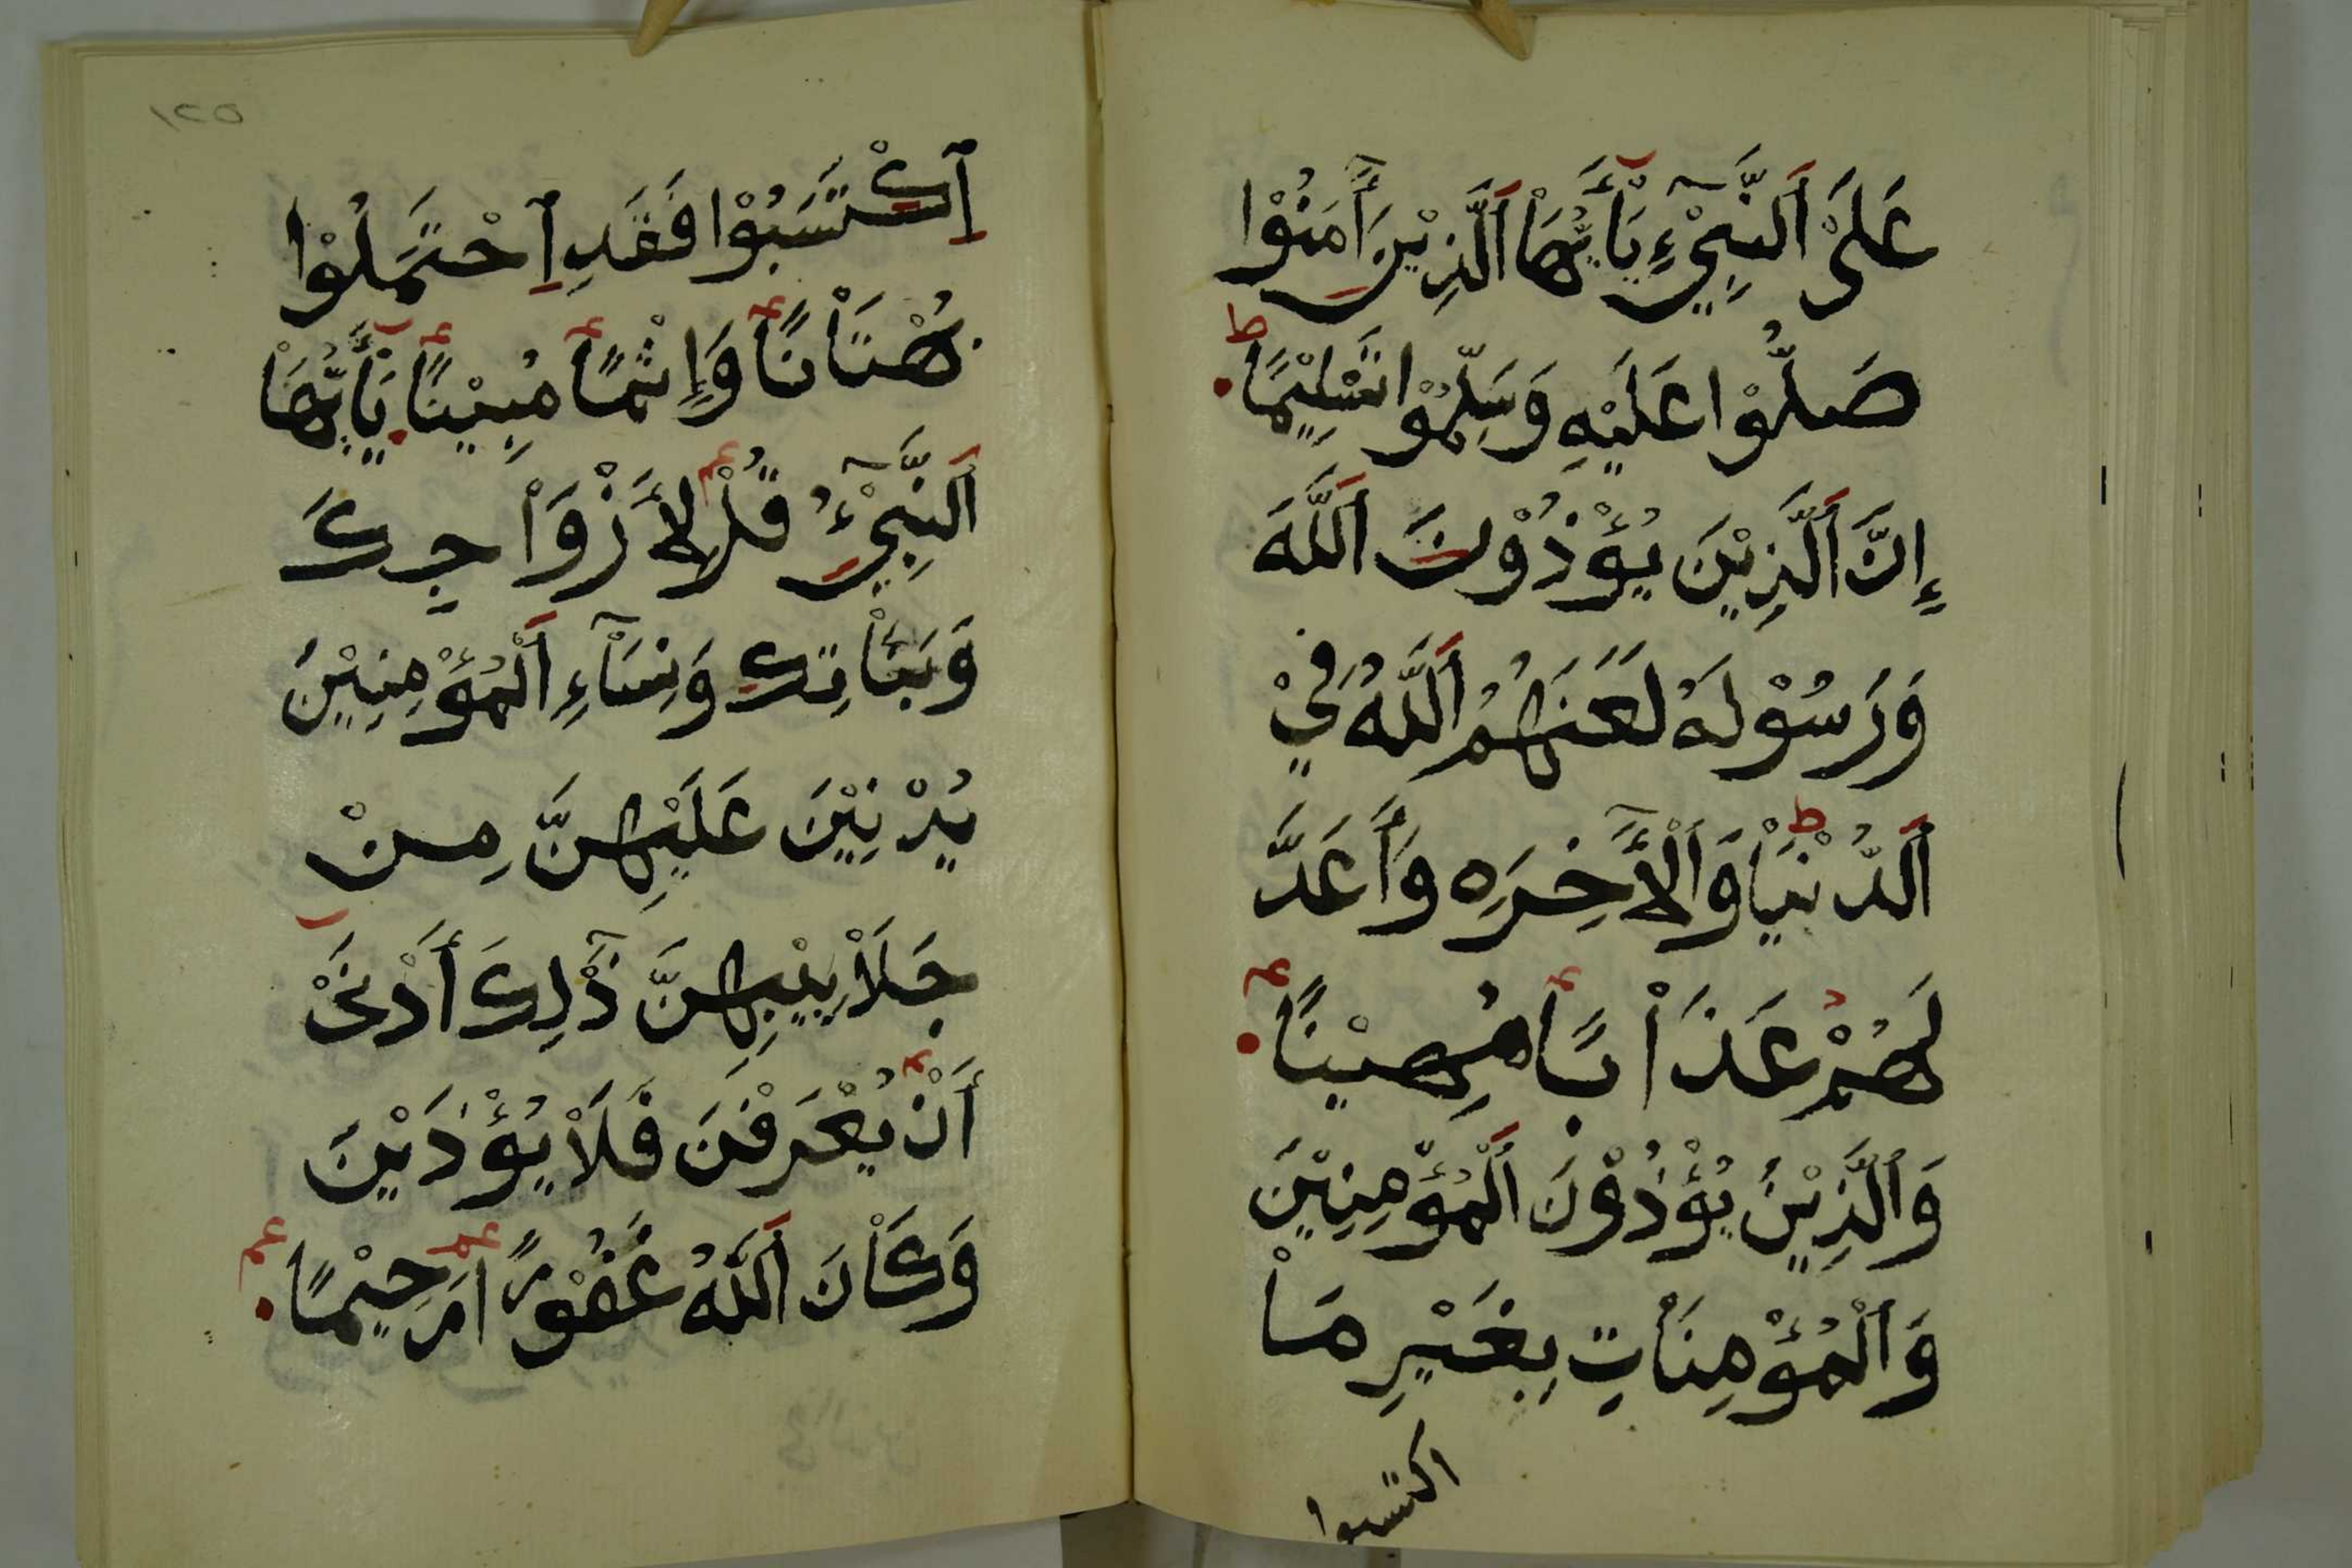 عَلَىْ اَلنَّبِيْۤءِ يَآَٰيُّهَاْ اَلَّذِيْنَ أَٰمَنُوْا
صَلُّوْا عَلَيْهِ وَسَلِّمُوْا تَسْلِيْمًا ط
إِنَّ اَلَّذِيْنَ يُؤْذُوْنَ اَللَّهَ
وَرَسُوْلَهُ لَعَنَهُمُ اَللَّهُ فِيْ
اَلدُّنْيَاْ ط وَاَلْأَٰخِرَهِ وَأَعَدَّ
لَهُمْ عَذَاْبًا مُهِيْنًا
وَاَلَّذِيْنَ يُؤْذُوْنَ اَلْمُؤْمِنِيْنَ
وَاَلْمُؤْمِنَاْتِ بِغَيْرِ مَاْ
اكتسبوا
١٢٥
اِكْتَسَبُوْا فَقَدِ اِحْتَمَلُوْا
بُهْتَاْنًا وَإِثْمًا مُبِيْنًا يَآَٰيُّهَاْ
اَلنَّبِيْۤءُ قُلْ لِأَزْوَاْجِكَ
وَبَنَاْتِكَ وَنِسَاْۤءِ اَلْمُؤْمِنِيْنَ
يُدْنِيْنَ عَلَيْهِنَّ مِنْ
جَلَاْبِيْبِهِنَّ ذَٰلِكَ أَدْنَىْ
أَنْ يُعْرَفْنَ فَلَاْ يُؤْذَيْنَ
وَكَاْنَ اَللَّهُ غَفُوْرًا رَحِيْمًا